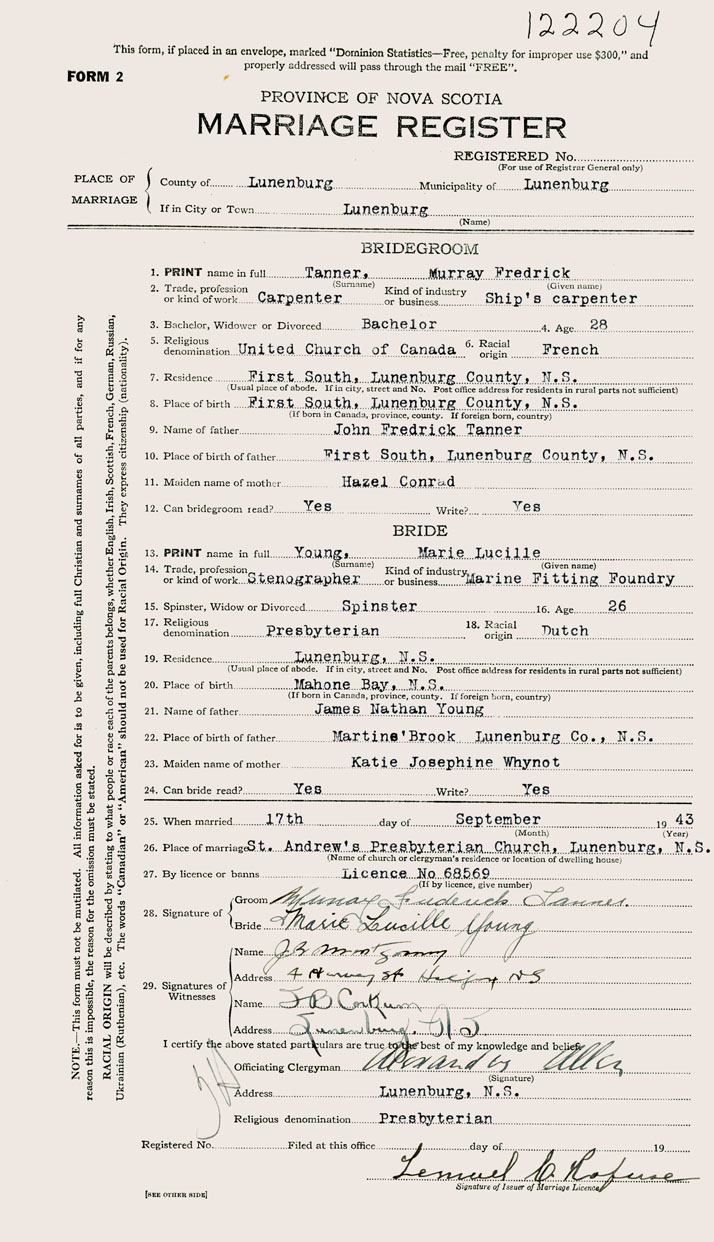 122204
This form, if placed in an envelope, marked "Dominion Statistics—Free, penalty for improper use $300," and
properly addressed will pass through the mail "FREE".
FORM 2
PROVINCE OF NOVA SCOTIA
MARRIAGE REGISTER
REGISTERED No.
(For use of Registrar General only)
PLACE OF MARRIAGE
County of Lunenburg Municipality of Lunenburg
If in City or Town Lunenburg
(Name)
BRIDEGROOM
1. PRINT name in full Tanner, Murray Fredrick
(Surname) (Given name)
2. Trade, profession or kind of work Carpenter Kind of industry or business Ship's carpenter
3. Bachelor, Widower or Divorced Bachelor 4. Age 28
5. Religious denomination United Church of Canada 6. Racial origin French
7. Residence First South, Lunenburg County, N.S.
(Usual place of abode. If in city, street and No. Post office address for residents in rural parts not sufficient)
8. Place of birth First South, Lunenburg County, N.S.
(If born in Canada, province, county. If foreign born, country)
9. Name of father John Fredrick Tanner
10. Place of birth of father First South, Lunenburg County, N.S.
11. Maiden name of mother Hazel Conrad
12. Can bridegroom read? Yes Write? Yes
BRIDE
13. PRINT name in full Young, Marie Lucille
(Surname) (Given name)
14. Trade, profession or kind of work Stenographer Kind of industry or business Marine Fitting Foundry
15. Spinster, Widow or Divorced Spinster 16. Age 26
17. Religious denomination Presbyterian 18. Racial origin Dutch
19. Residence Lunenburg, N.S.
(Usual place of abode. If in city, street and No. Post office address for residents in rural parts not sufficient)
20. Place of birth Mahone Bay, N.S.
(If born in Canada, province, county. If foreign born, country)
21. Name of father James Nathan Young
22. Place of birth of father Martins'Brook Lunenburg Co., N.S.
23. Maiden name of mother Katie Josephine Whynot
24. Can bride read? Yes Write? Yes
25. When married 17th day of September 19 43
(Month) (Year)
26. Place of marriage St. Andrew's Presbyterian Church, Lunenburg, N.S.
(Name of church or clergyman's residence or location of dwelling house)
27. By licence or banns Licence No 68569
(If by licence, give number)
28. Signature of
Groom Murray Frederick Tanner.
Bride Marie Lucille Young
29. Signatures of Witnesses
Name J B Montgomery
Address 4 Harvey St Halifax NS
Name F B Corkum
Address Lunenburg. N S
I certify the above stated particulars are true to the best of my knowledge and belief.
Officiating Clergyman Alexander Allen
(Signature)
Address Lunenburg, N.S.
Religious denomination Presbyterian
Registered No. Filed at this office day of 19
Lemuel
Signature of Issuer of Marriage Licence
[SEE OTHER SIDE]
NOTE.—This form must not be mutilated. All information asked for is to be given, including full Christian and surnames of all parties, and if for any
reason this is impossible, the reason for the omission must be stated.
RACIAL ORIGIN will be described by stating to what people or race each of the parents belongs, whether English, Irish, Scottish, French, German, Russian,
Ukrainian (Ruthenian), etc. The words "Canadian" or "American" should not be used for Racial Origin. They express citizenship (nationality).